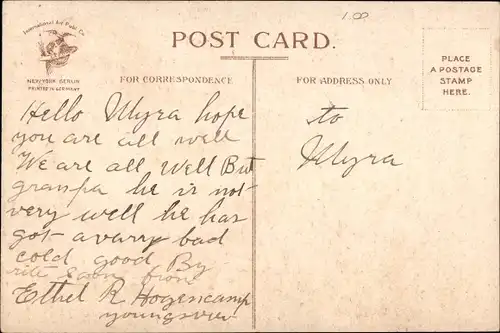 1.00
International Art Publ. Co.
NEW YORK BERLIN
PRINTED IN GERMANY
POST CARD.
FOR CORRESPONDENCE
FOR ADDRESS ONLY
PLACE
A POSTAGE
STAMP
HERE.
Hello Myra hope
you are all well
We are all Well But
granpa he is not
very well he has
got a varry bad
cold good By
rite soon from
Ethel R Hogencamp
to
Myra